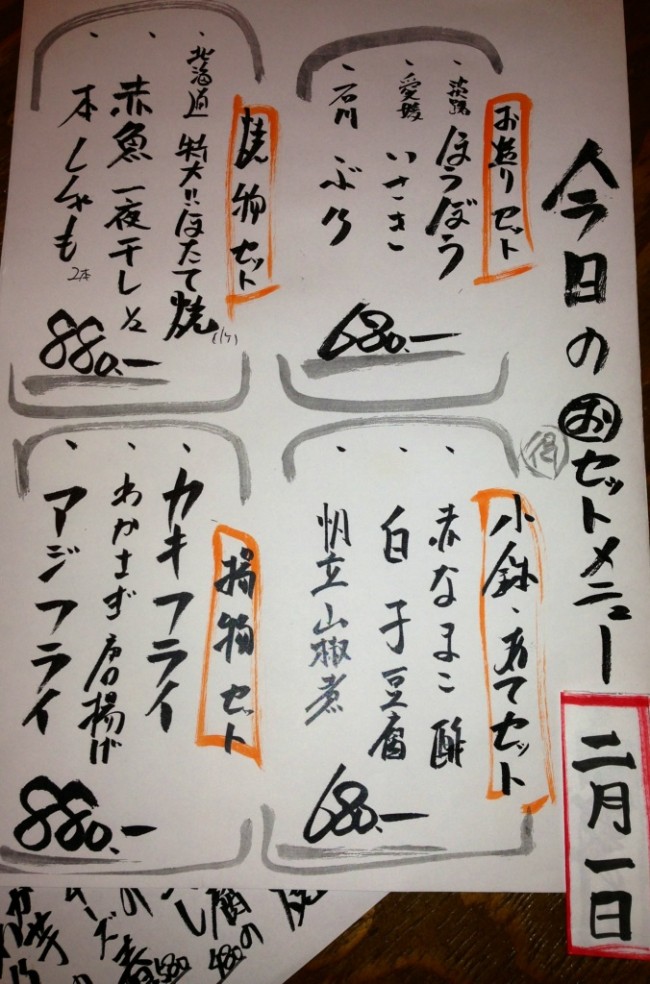 今日のおセットメニュー
得
二月一日
お造りセット
、淡路 ほうぼう
、愛媛 いさき
、石川 ぶり
680.ー
焼物セット
、北海道 特大!!ほたて焼(1ケ)
、赤魚一夜干し
、本ししゃも 2本
880.ー
小鉢、あてセット
、赤なまこ酢
、白子豆腐
、帆立山椒煮
680.ー
揚物セット
、カキフライ
、わかさぎ唐揚げ
、アジフライ
880.ー
の
480